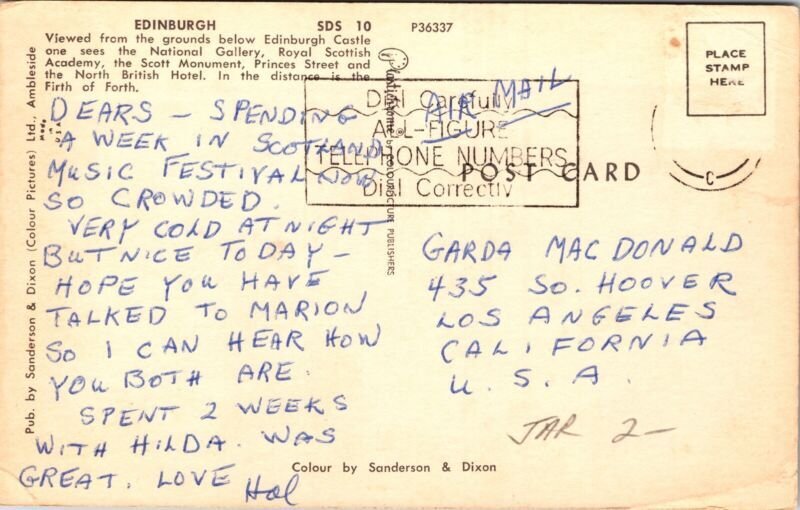 EDINBURGH SDS 10 P36337
Viewed from the grounds below Edinburgh Castle
one sees the National Gallery, Royal Scottish
Academy, the Scott Monument, Princes Street and
the North British Hotel. In the distance is the
Firth of Forth.
DEARS - SPENDING
A WEEK IN SCOTLAND
MUSIC FESTIVAL NOW
SO CROWDED.
VERY COLD AT NIGHT
BUT NICE TODAY -
HOPE YOU HAVE
TALKED TO MARION
SO I CAN HEAR HOW
YOU BOTH ARE.
SPENT 2 WEEKS
WITH HILDA. WAS
GREAT. LOVE Hal
Pub. by Sanderson & Dixon (Colour Pictures) Ltd., Ambleside
Made in U.S.A.
Plastichrome by COLOURPICTURE PUBLISHERS
AIR MAIL
Dial Carefully
ALL-FIGURE
TELEPHONE NUMBERS
Dial Correctly
POST CARD
PLACE
STAMP
HERE
C
GARDA MACDONALD
435 SO. HOOVER
LOS ANGELES
CALIFORNIA
U.S.A.
JAR 2-
Colour by Sanderson & Dixon